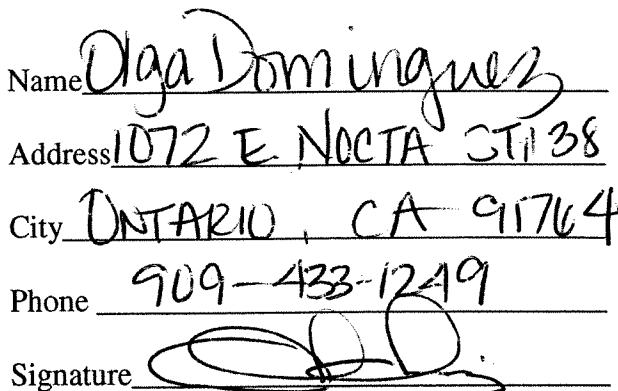 Name Olga Dominguez
Address 1072 E NOCTA ST 138
City ONTARIO, CA 91764
Phone 909-433-1249
Signature